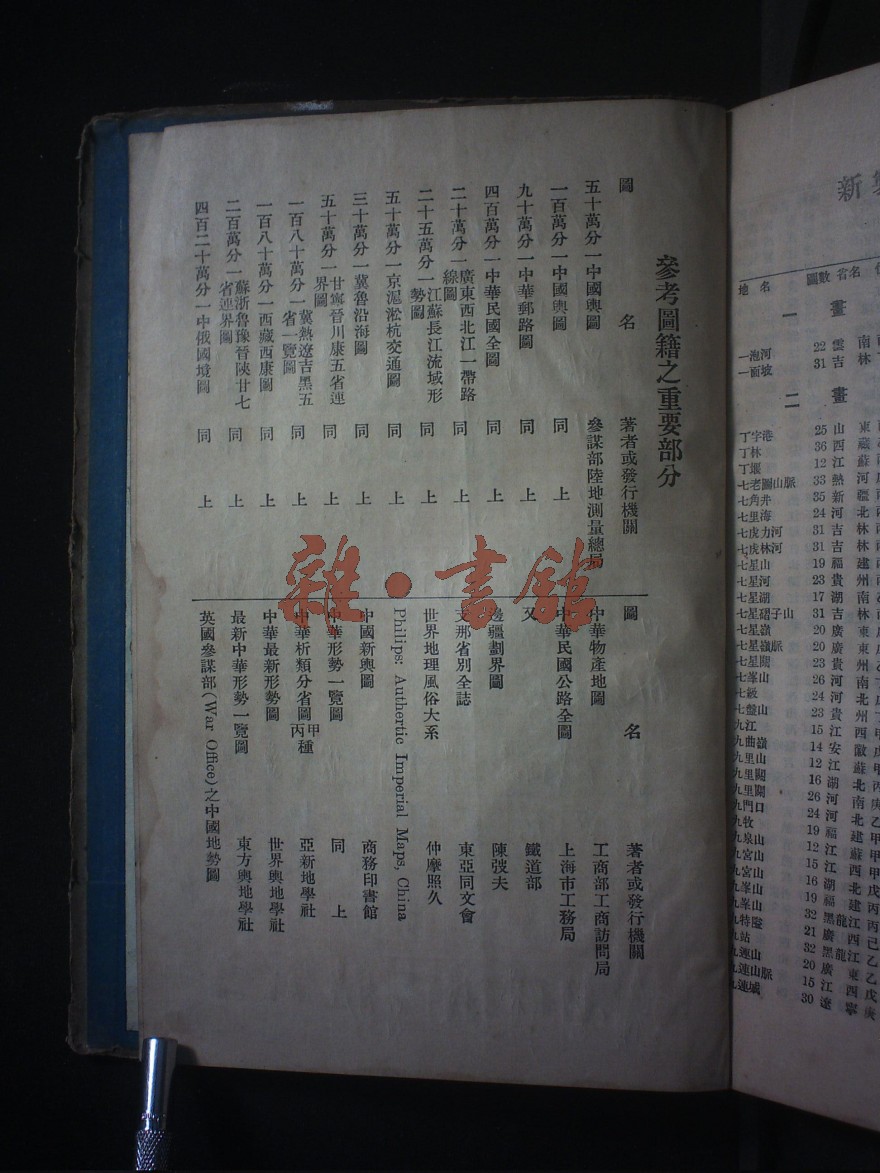 參考圖籍之重要部分
圖名 著者或發行機關
五十萬分一中國輿圖 參謀部陸地測量總局
一百萬分一中國輿圖 同上
九十萬分一中華郵路圖 同上
四百萬分一中華民國全圖 同上
二十萬分一廣東西北江一帶路線圖 同上
二十五萬分一江蘇長江流域形勢圖 同上
五十萬分一京滬淞杭交通圖 同上
三十萬分一冀魯沿海圖 同上
五十萬分一甘寧晉川康五省連界圖 同上
一百八十萬分一冀熱遼吉黑五省一覽圖 同上
一百八十萬分一西藏西康圖 同上
二百萬分一蘇浙魯豫晉陝廿七省連界圖 同上
四百二十萬分一中俄國境圖 同上
圖名 著者或發行機關
中華物產地圖 工商部工商訪問局
中華民國公路全圖 上海市工務局
又 鐵道部
邊疆劃界圖 陳弢夫
支那省別全誌 東亞同文會
世界地理風俗大系 仲摩照久
Philips: Authertic Imperial Maps, China
中國新輿圖 商務印書館
中華形勢一覽圖 同上
中華析類分省圖甲丙種 亞新地學社
中華最新形勢圖 世界輿地學社
最新中華形勢一覽圖 東方輿地學社
英國參謀部(War Office)之中國地勢圖
雜·書館
新
地名 圖數 省名
一畫
一泡河 22 雲南
一面坡 31 吉林
二畫
丁字港 25 山東
丁林 36 西藏
丁堰 12 江蘇
七老圖山脈 33 熱河
七角井 35 新疆
七里海 24 河北
七虎力河 31 吉林
七虎林河 31 吉林
七星山 19 福建
七星河 23 貴州
七星湖 17 湖南
七星砬子山 31 吉林
七星嶺 20 廣東
七星嶺脈 20 廣東
七星關 23 貴州
七峯山 26 河南
七級 24 河北
七盤山 23 貴州
九江 15 江西
九曲嶺 14 安徽
九里山 12 江蘇
九里關 16 湖北
九里關 26 河南
九門口 24 河北
九牧 19 福建
九泉山 12 江蘇
九宮山 15 江西
九宮山 16 湖北
九峯山 19 福建
九峯山 32 黑龍江
九特隘 21 廣西
九站 32 黑龍江
九連山 20 廣東
九連山脈 15 江西
九連城 30 遼寧